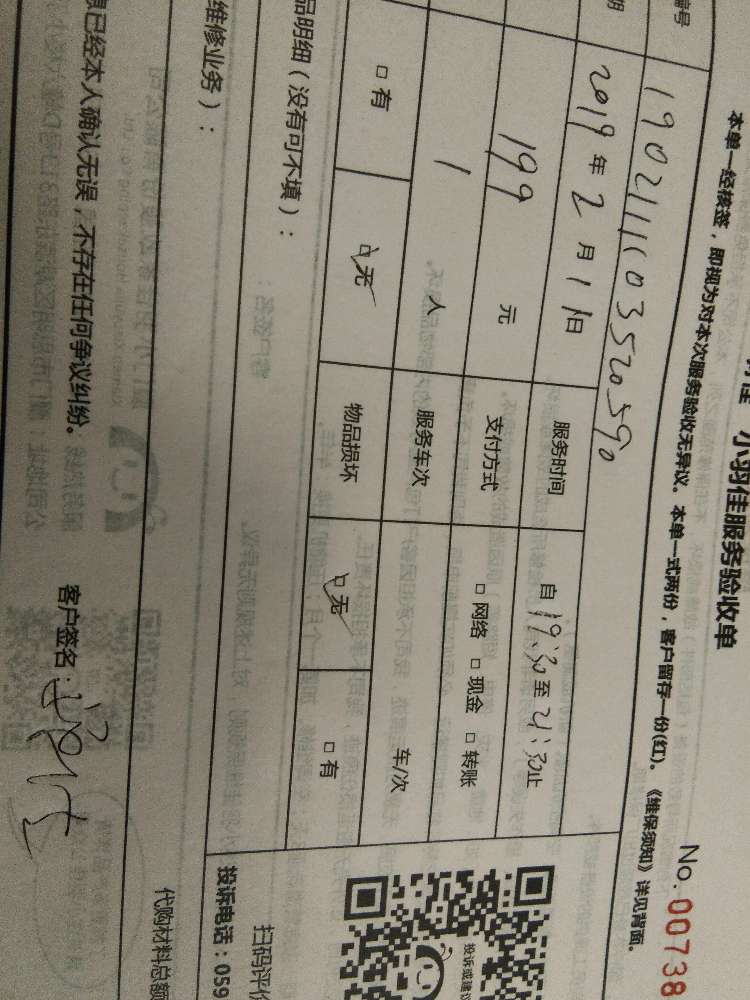 小羽佳服务验收单
No.00738
本单一经核签，即视为对本次服务验收无异议。本单一式两份，客户留存一份(红)。《维保须知》详见背面。
编号 190211103520590
期 2019年2月11日 服务时间 自19:30至21:30止
199元 支付方式 □网络 □现金 □转账
1人 服务车次 车/次
□有 □无 物品损坏 □无 □有
品明细（没有可不填）：
投诉或建议
扫码评价
维修业务）：
投诉电话：059
代购材料总额
息已经本人确认无误，不存在任何争议纠纷。
客户签名：